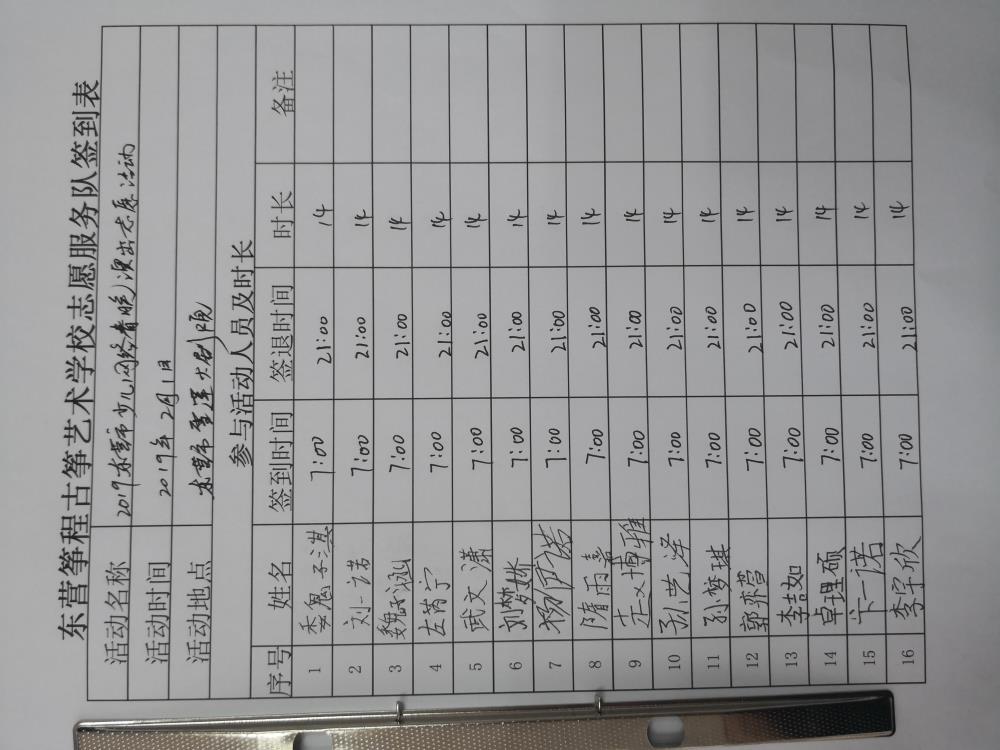 东营筝程古筝艺术学校志愿服务队签到表
活动名称 2019东营市少儿网络春晚演出志愿活动
活动时间 2019年2月1日
活动地点 东营市雪莲大剧院
参与活动人员及时长
序号 姓名 签到时间 签退时间 时长 备注
1 魏子淇 7:00 21:00 14
2 刘一诺 7:00 21:00 14
3 魏子涵 7:00 21:00 14
4 左芮宁 7:00 21:00 14
5 武文潇 7:00 21:00 14
6 刘梦姝 7:00 21:00 14
7 7:00 21:00 14
8 隋雨嘉 7:00 21:00 14
9 博雅 7:00 21:00 14
10 孙艺泽 7:00 21:00 14
11 孙梦琪 7:00 21:00 14
12 郭 7:00 21:00 14
13 李喆如 7:00 21:00 14
14 卓理硕 7:00 21:00 14
15 卞一诺 7:00 21:00 14
16 李宇欣 7:00 21:00 14